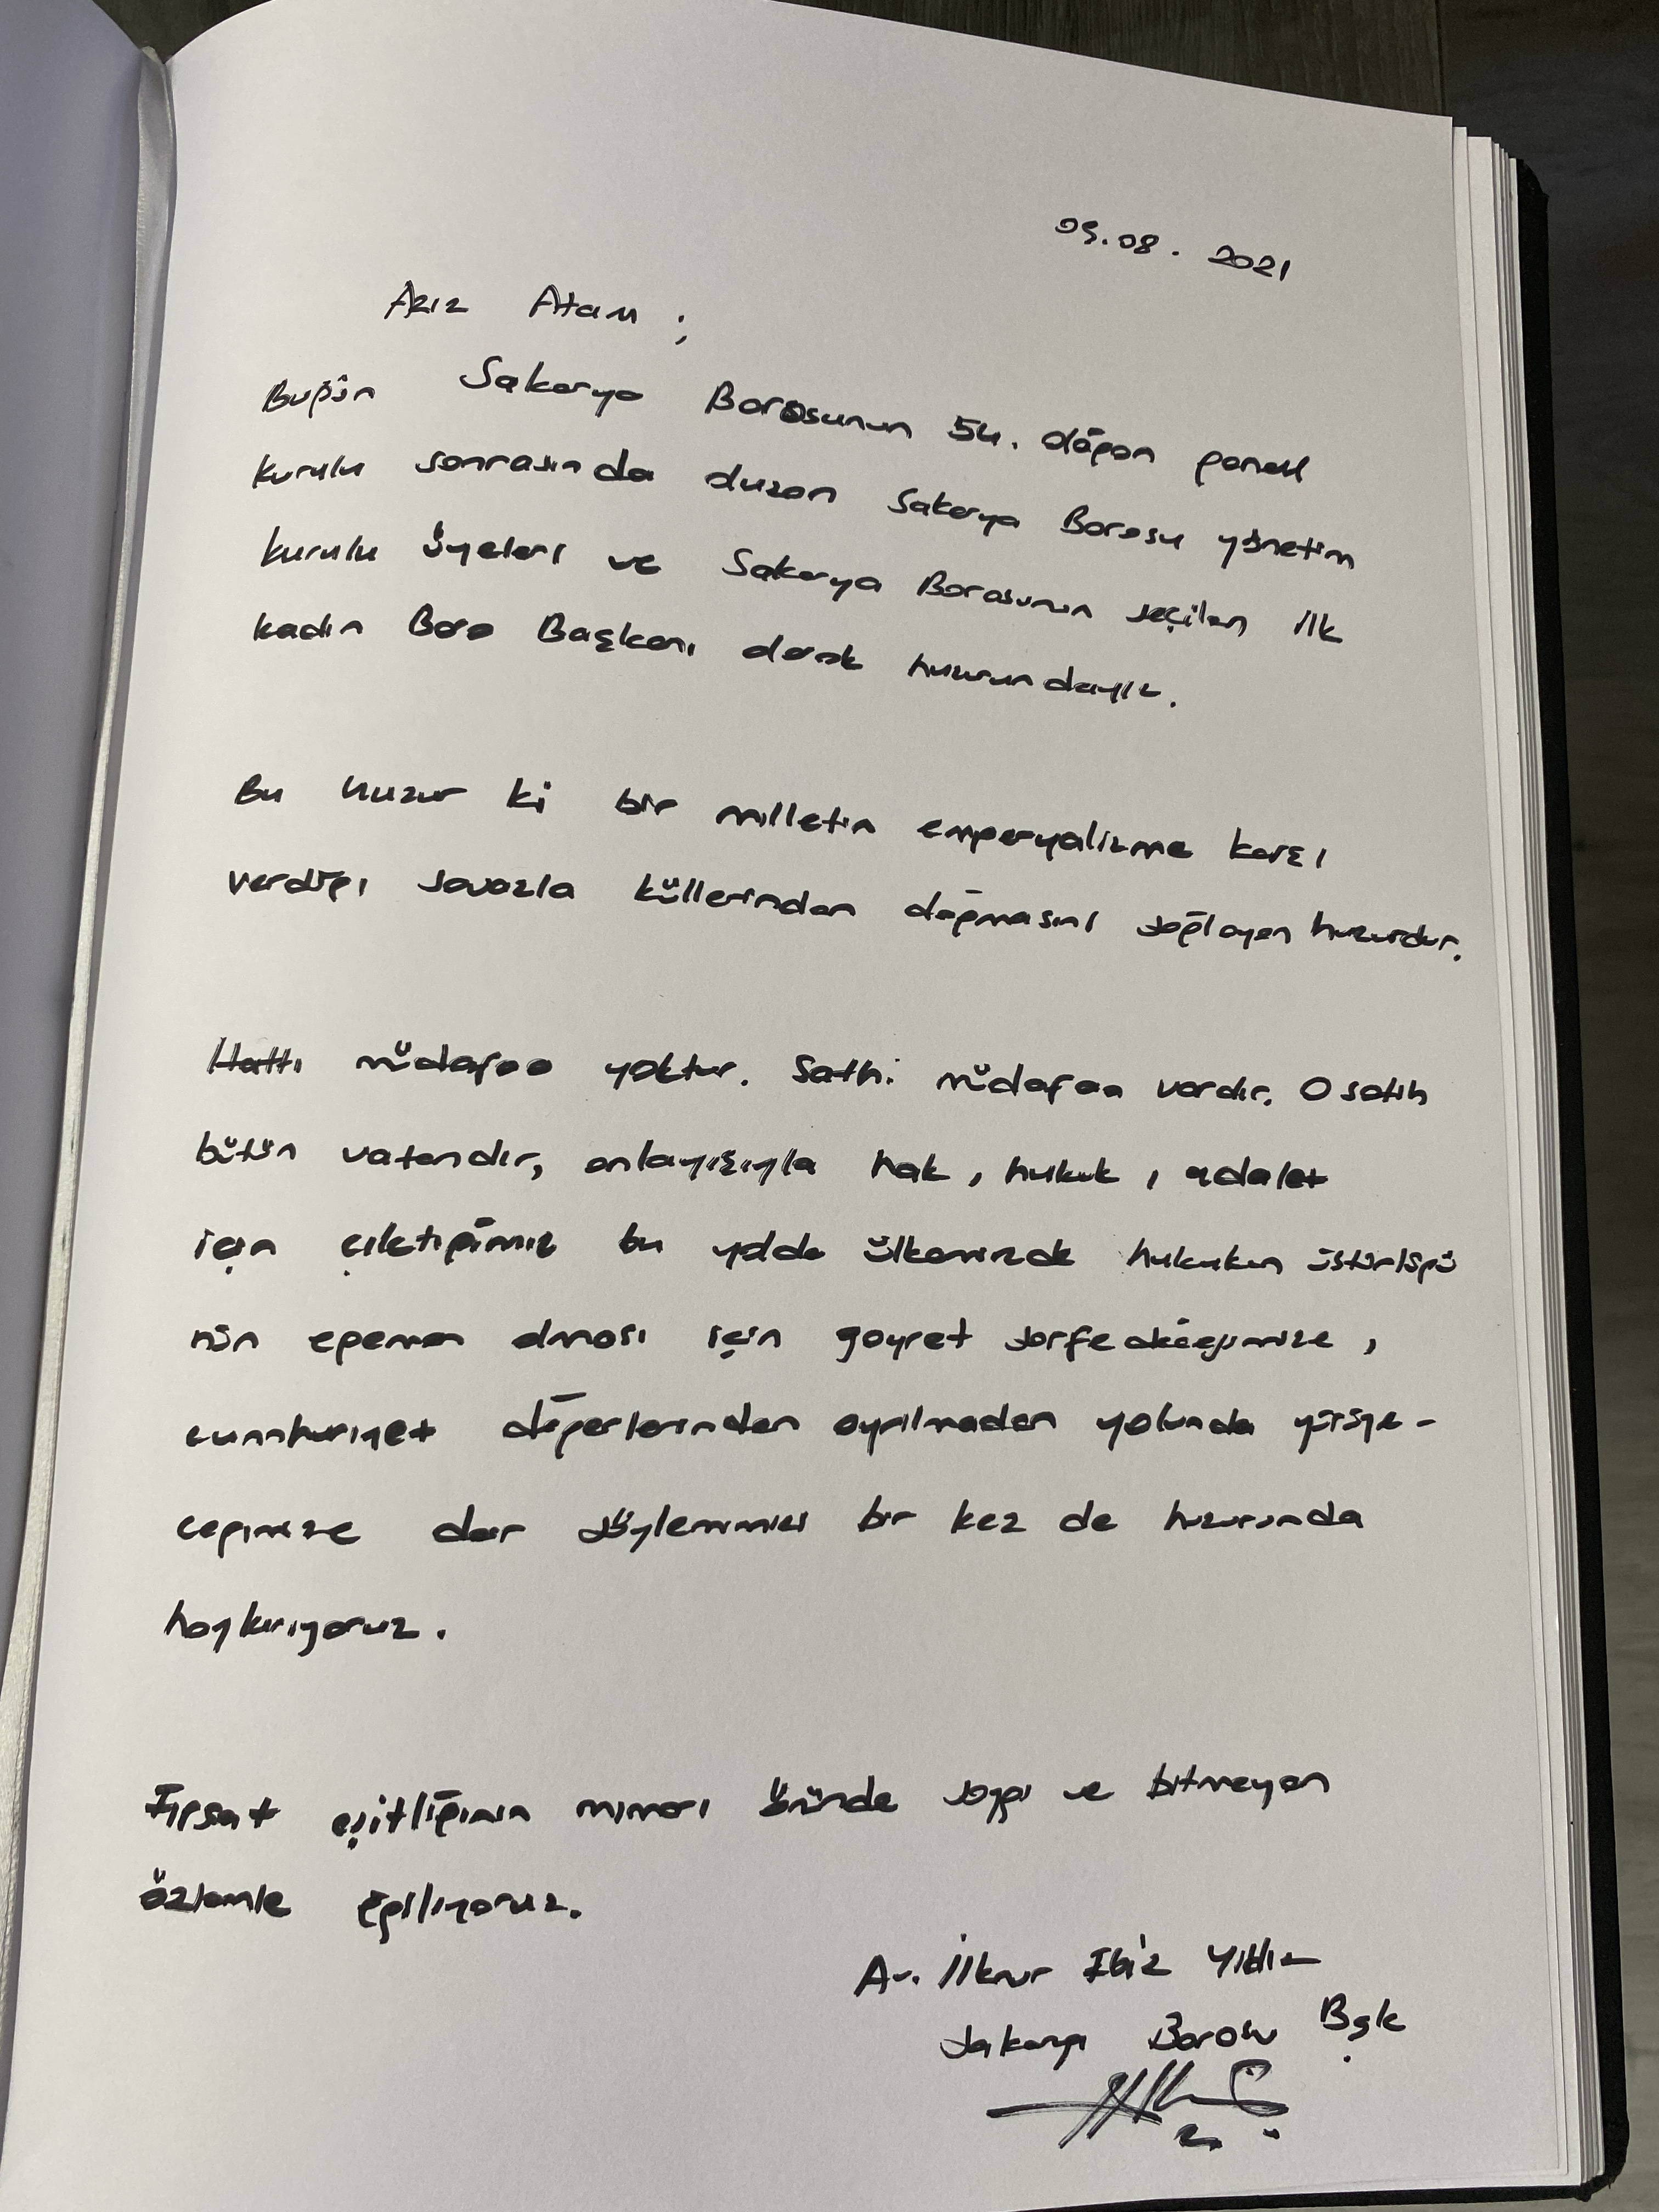 09.08.2021
Aziz Atam ;
Bugün Sakarya Barosunun 54. olağan genel
kurulu sonrasında oluşan Sakarya Barosu yönetim
kurulu üyeleri ve Sakarya Barosunun seçilen ilk
kadın Baro Başkanı olarak huzurundayız.
Bu huzur ki bir milletin emperyalizme karşı
verdiği savaşla küllerinden doğmasını sağlayan huzurdur.
Hattı müdafaa yoktur. Sathi müdafaa vardır. O satıh
bütün vatandır, anlayışıyla hak, hukuk, adalet
için çıktığımız bu yolda ülkemizde hukukun üstünlüğü
nün egemen olması için gayret sarfedeceğimize,
cumhuriyet değerlerinden ayrılmadan yolunda yürüye-
ceğimize dair söylemimizi bir kez de huzurunda
haykırıyoruz.
Fırsat eşitliğinin mimarı önünde saygı ve bitmeyen
özlemle eğiliyoruz.
Av. İlknur Ebiz Yıldız
Sakarya Barosu Bşk